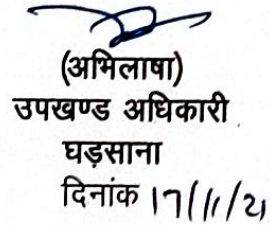 (अभिलाषा)
उपखण्ड अधिकारी
घड़साना
दिनांक 17/11/21